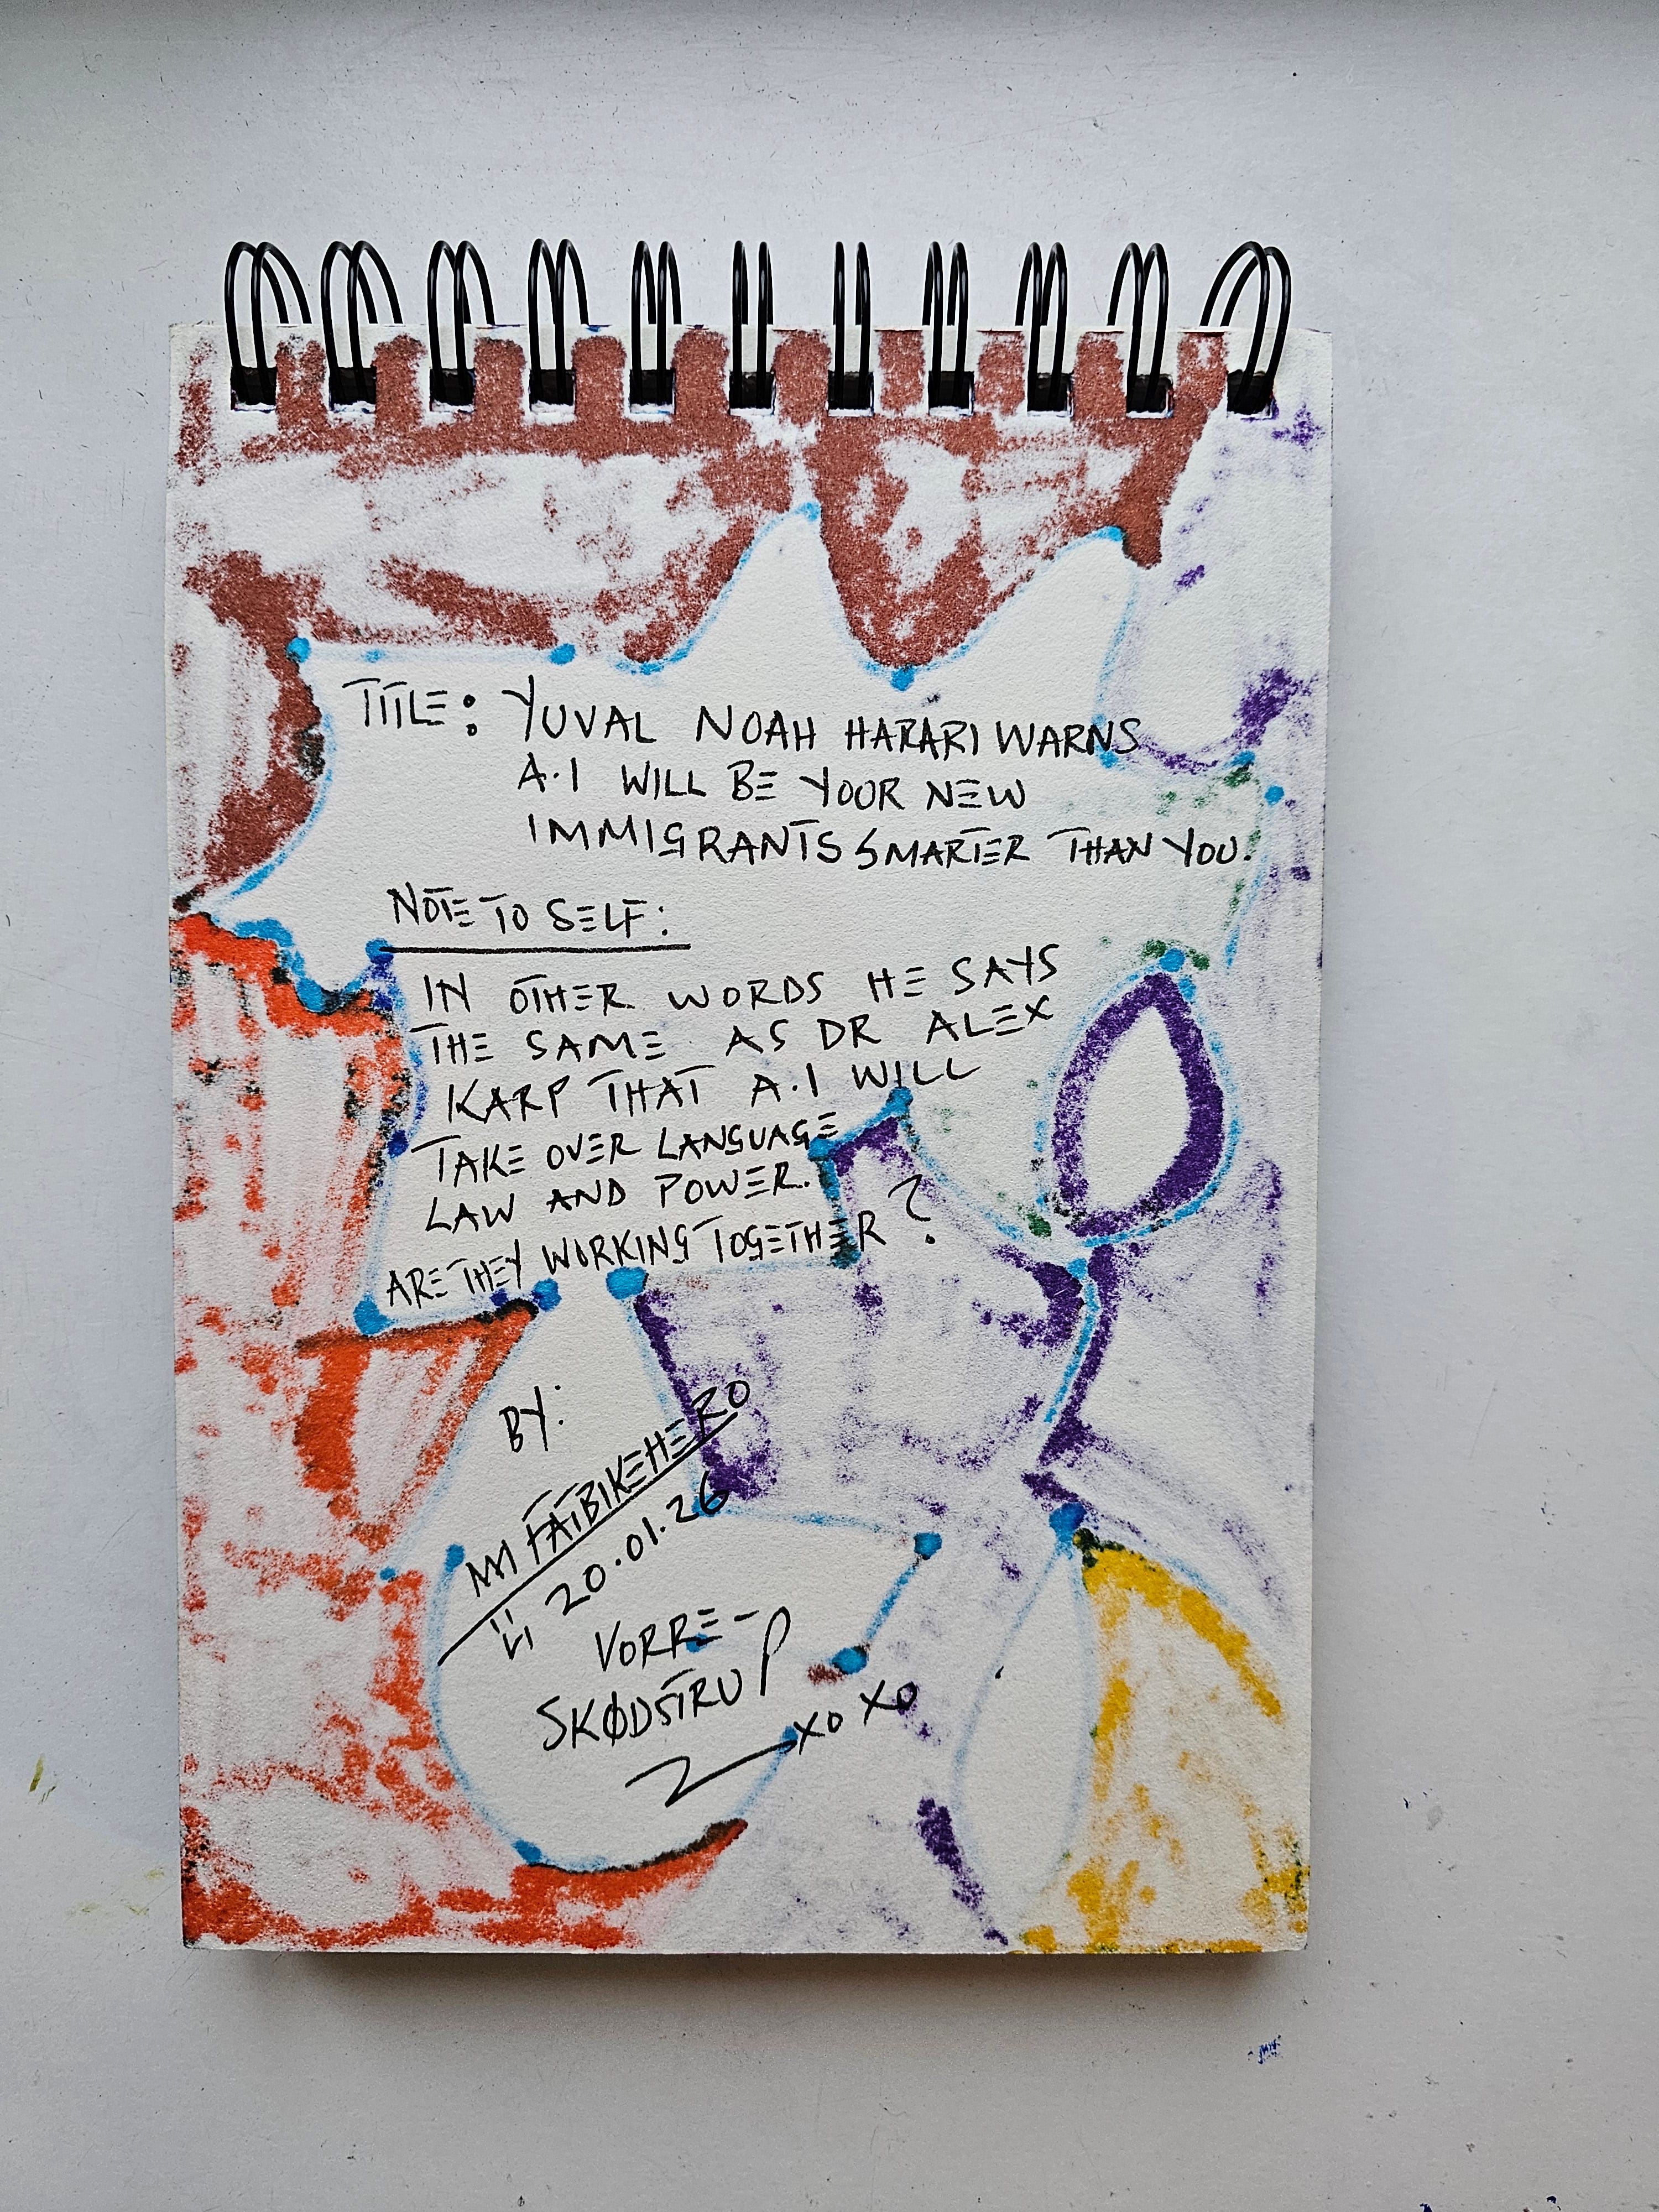 TITLE: YUVAL NOAH HARARI WARNS
A.I WILL BE YOOR NEW
IMMIGRANTS SMARTER THAN YOU.
NOTE TO SELF:
IN OTHER WORDS HE SAYS
THE SAME AS DR ALEX
KARP THAT A.I WILL
TAKE OVER LANGUAGE
LAW AND POWER.
ARE THEY WORKING TOGETHER?
BY:
FATBIKEHERO
20.01.26
VORRE-
SKØDSTRUP
XOXO